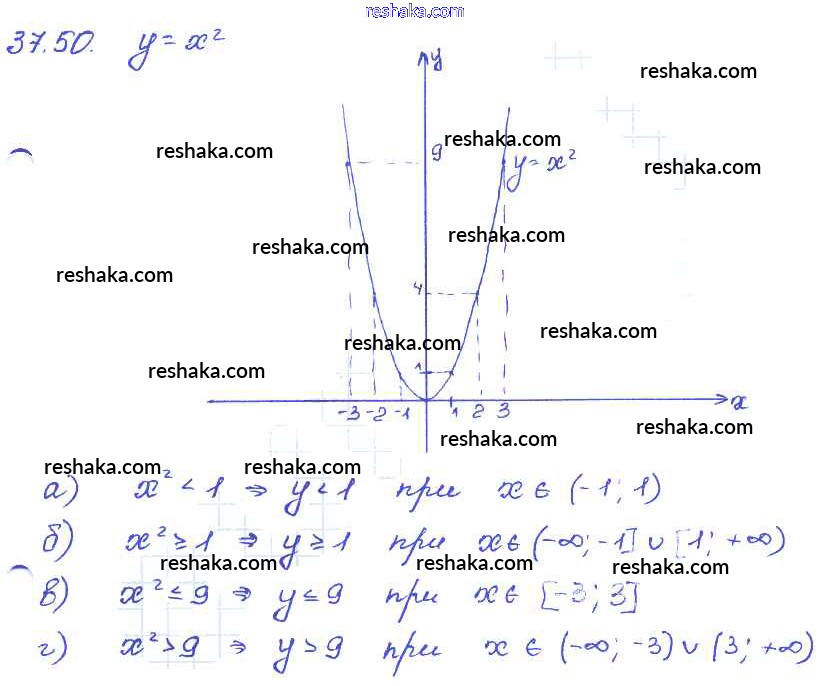 reshaka.com
37.50. y = x²
y
reshaka.com
reshaka.com
reshaka.com
9
y = x²
reshaka.com
reshaka.com
reshaka.com
reshaka.com
4
reshaka.com
reshaka.com
1
reshaka.com
-3 -2 -1 1 2 3 x
reshaka.com
reshaka.com
reshaka.com reshaka.com
а) x² < 1 ⇒ y < 1 при x ∈ (-1; 1)
б) x² ≥ 1 ⇒ y ≥ 1 при x ∈ (-∞; -1] ∪ [1; +∞)
reshaka.com reshaka.com
в) x² ≤ 9 ⇒ y ≤ 9 при x ∈ [-3; 3]
г) x² > 9 ⇒ y > 9 при x ∈ (-∞; -3) ∪ (3; +∞)